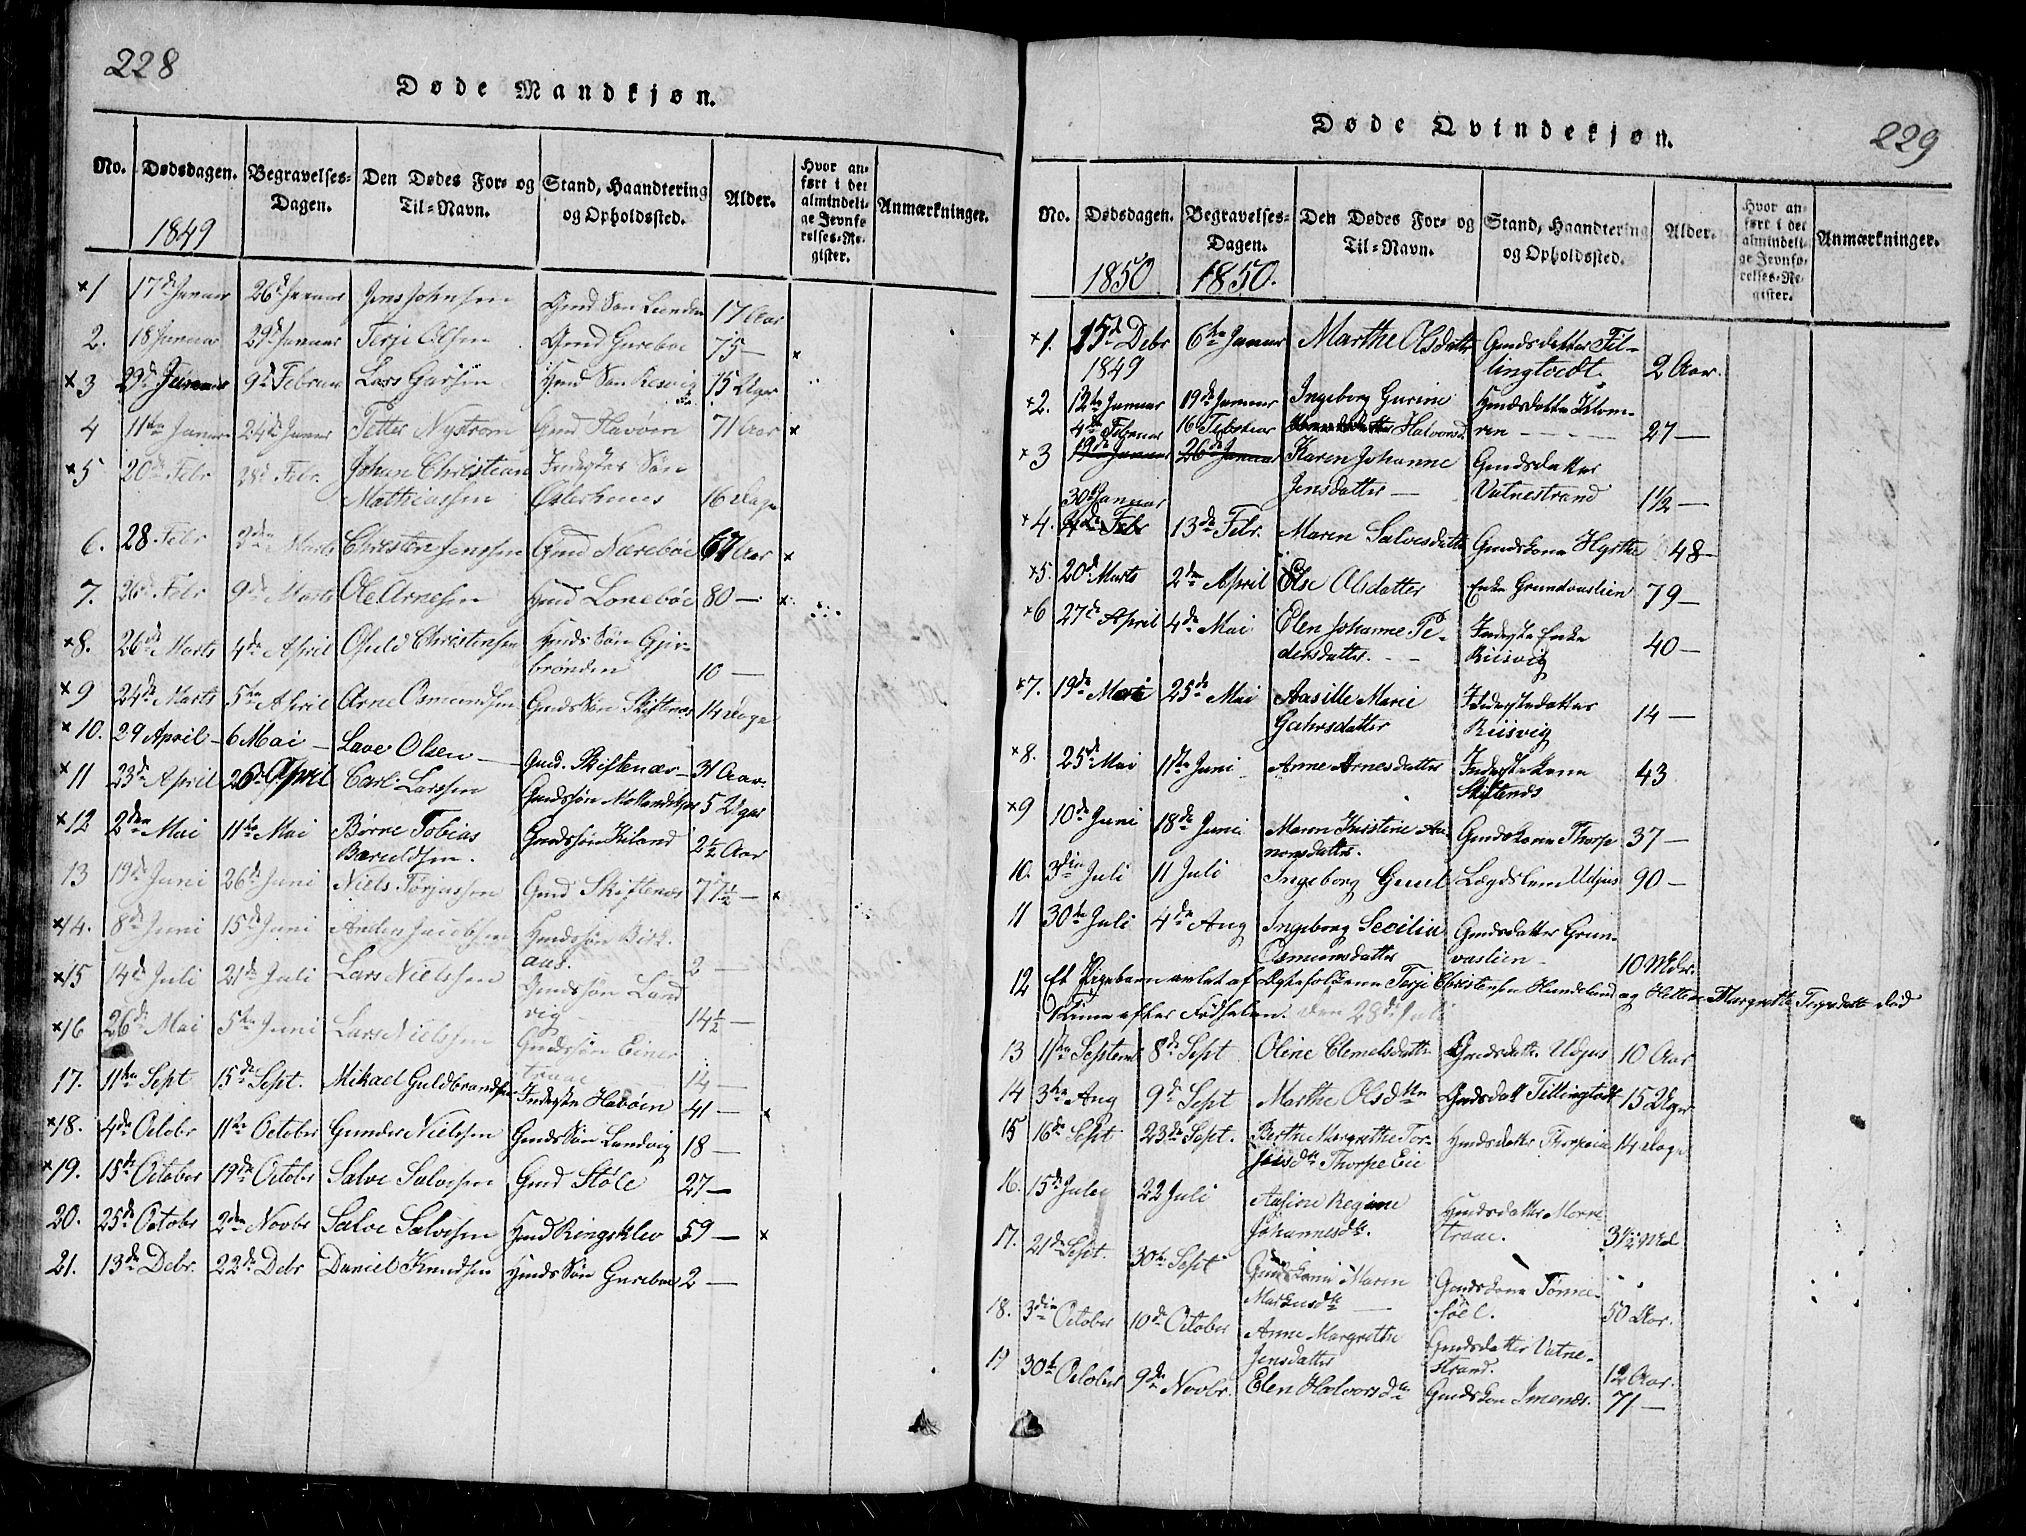 228
Døde Mandkjøn.
No. Dødsdagen. Begravelses-Dagen. Den Dødes For- og Til-Navn. Stand, Haandtering og Opholdssted. Alder. Hvor anført i det almindelige Jevnførelses-Register. Anmærkninger.
1849
×1 17de Januar 26de Januar Jens Johnsen Gmd Søn Lunden 17 Aar
2. 18 Januar 29de Januar Terje Olsen Gmd Gurebo 75 — ×
×3 29de Januar 9de Februar Lars Hmd Søn Resvig 15 Uger
4 11te Januar 24de Januar Petter Nystrøm Gmd Havøen 71 Aar ×
×5 20de Febr 28de Febr. Johan Christian Inderstes Søn
Mathiassen Østerhuus 16 Dage
6. 28. Febr Marts Christen Jenssen Gmd Nærebøe 67 Aar ×
7. 26de Febr 9de Marts Ole Arnesen Hmd Lonebøe 80 — ×
×8. 26de Marts 4de April Osuld Christensen Hmds Søn Gjer-
brønden 10 —
×9 24de Marts 5te April Arne Osmundsen Gmds Søn Skiftenæs 14 Dage
×10. 29 April — 6 Mai — Lave Olsen — Gmd. Skiftenæs — 31 Aar.
×11 23de April 26de April Carl Larssen Gmdssøn Mollands 5 Uger
×12 2den Mai 11te Mai Børne Tobias Gmdssøn Kiland 2½ Aar
Baruldsen.
13 19de Juni 26de Juni Niels Torjussen Gmd Skiftenæs 77½ — ×
×14. 8de Juni 15de Juni Anders Jacobsen Hmdssøn Birk-
aas. 2 —
×15 14de Juli 21de Juli Lars Nielssen Gmdssøn Land
vig — 14½ —
×16 26de Mai 5te Juni Lars Nielssen Gmdssøn Einer
traae 14 —
17. 11te Sept 15de Sept. Mikael Guldbrandsen Inderste Havøen 41 — ×
×18. 4de Octobr 11te October Gunder Nielssen Gmds Søn Landvig 18 —
×19. 15de October 19de October Salve Salvesen Gmd Støle 27 —
20. 25de October 2den Novbr Salve Salvesen Hmd Ringeklev 59 — ×
21. 13de Debr. 22de Debr Daniel Knudsen Hmds Søn Gurebo 2 —
229
Døde Qvindekjøn.
No. Dødsdagen. Begravelses-Dagen. Den Dødes For- og Til-Navn. Stand, Haandtering og Opholdssted. Alder. Hvor anført i det almindelige Jevnførelses-Register. Anmærkninger.
1850 1850.
×1. 15de Debr 6te Januar Marthe Olsdatter Gmdsdatter Til-
1849 lingtvedt. 2 Aar.
×2. 12te Januar 19de Januar Ingeborg Gurine Hmdsdatter Klom-
4de Februar 16 Februar Halvorsd. ren — 27 —
×3 19de Januar 26de Januar Karen Johanne Gmdsdatter
Jensdatter — Vatnestrand 1½ —
30te Januar
×4. 4de Febr 13de Febr. Maren Salvesdatter Gmdskone Hyrthe 48 —
×5. 20de Marts 2den April Else Olsdatter Enke Grundvaslien 79 —
×6 27de April 4de Mai Elen Johanne Pe- Inderste Enke
dersdatter. — Riisvig 40 —
×7. 19de Marts 25de Mai Aasille Marie Inderstedatter
Gahrsdatter Riisvig 14 —
×8. 25de Mai 11te Juni Anne Arnesdatter Inderstekone
Skiftenæs 43
×9 10de Juni 18de Juni. Maren Kirstine Aa- Gmdskone Thorpe 37 —
nonsdatter.
10. 3die Juli 11 Juli Ingeborg Lægdslem Udjus 90 —
11 30te Juli 4de Aug Ingeborg Secilia Gmdsdatter Grun-
Osmunsdatter vaslien — 10 Mdr.
12 Et Pigebarn avlet af Ægtefolkene Terje Christensen Hundeland og Helene Margrethe Terjesdatter død
Time efter Fødselen. den 28de Juli
13 11te Septem 8de Sept Oline Clemetsdatter Gmdsdatter Udjus 10 Aar
14 3die Aug 9de Sept Marthe Olsdtr Gmdsdatt Tillingtvedt 15 Uger
15 16de Sept 23de Sept. Berthe Margrethe Tor- Hmdsdatter Thorpeie 14 Dage
Thorpe Eie
16. 15de July 22 Juli Aasine Regine Hmdsdatter Morre
Johannesdtr. traae. 3½ Md
17. 21de Sept. 30te Sept Gmdskone Maren
Markusdtr — Gmdskone Tønne-
18. 3die October 10de October Anne Margrethe søel. 50 Aar.
Jensdatter Gmdsdatter Vatne-
19 30te October 9de Novbr. Elen Halvorsdtr strand. 12 Aar.
Gmdskone Imenæs. 71 —